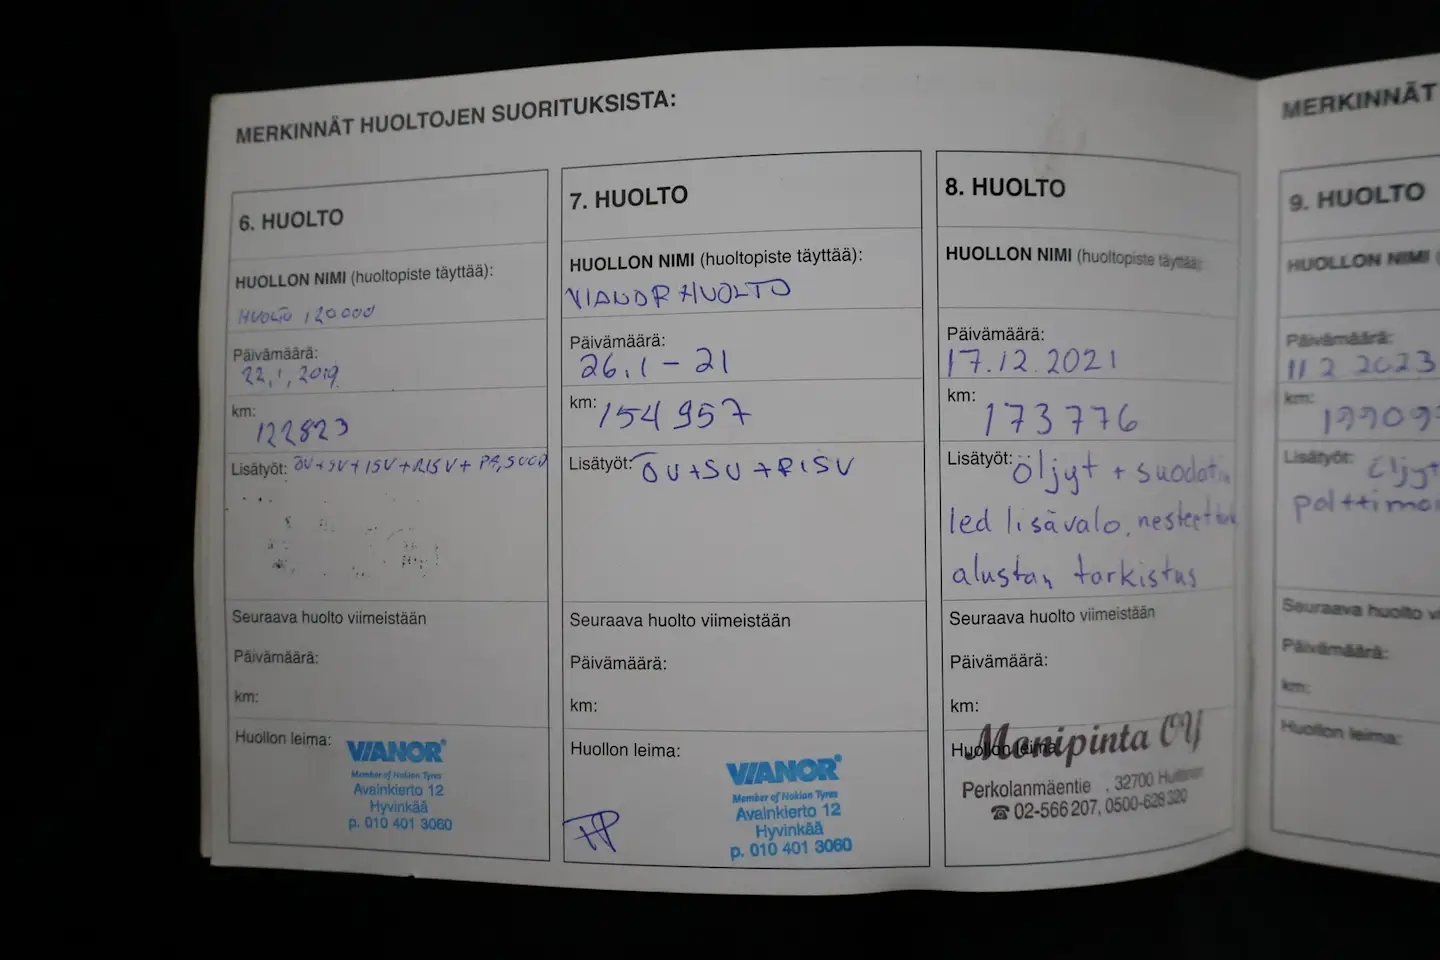 MERKINNÄT HUOLTOJEN SUORITUKSISTA:
6. HUOLTO
HUOLLON NIMI (huoltopiste täyttää):
HUOLTO 120000
Päivämäärä:
22,1,2019
km:
122823
Lisätyöt: ÖV+SV+ISV+RISV+
Seuraava huolto viimeistään
Päivämäärä:
km:
Huollon leima:
VIANOR
Member of Nokian Tyres
Avainkierto 12
Hyvinkää
p. 010 401 3060
7. HUOLTO
HUOLLON NIMI (huoltopiste täyttää):
VIANOR HUOLTO
Päivämäärä:
26.1-21
km:
154957
Lisätyöt: ÖV+SV+RISV
Seuraava huolto viimeistään
Päivämäärä:
km:
Huollon leima:
VIANOR
Member of Nokian Tyres
Avainkierto 12
Hyvinkää
p. 010 401 3060
8. HUOLTO
HUOLLON NIMI (huoltopiste täyttää):
Päivämäärä:
17.12.2021
km:
173776
Lisätyöt: öljyt + suodatin
led lisävalo, nesteet
alustan tarkistus
Seuraava huolto viimeistään
Päivämäärä:
km:
Huollon leima:
Monipinta OY
Perkolanmäentie , 32700 Huittinen
☎ 02-566 207, 0500-628 320
MERKINNÄT
9. HUOLTO
HUOLLON NIMI
Päivämäärä:
11 2 2023
km:
Lisätyöt: öljyt
Seuraava huolto
Päivämäärä:
km:
Huollon leima: